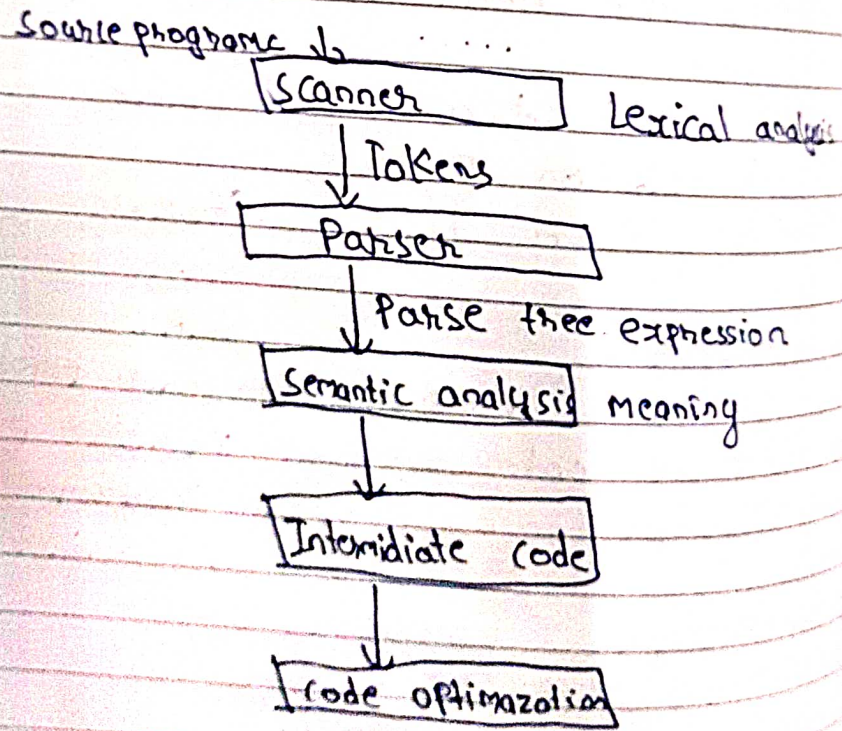 Source programe
Scanner Lexical analysis
Tokens
Parser
Parse tree expression
Semantic analysis meaning
Intermidiate code
Code optimazation